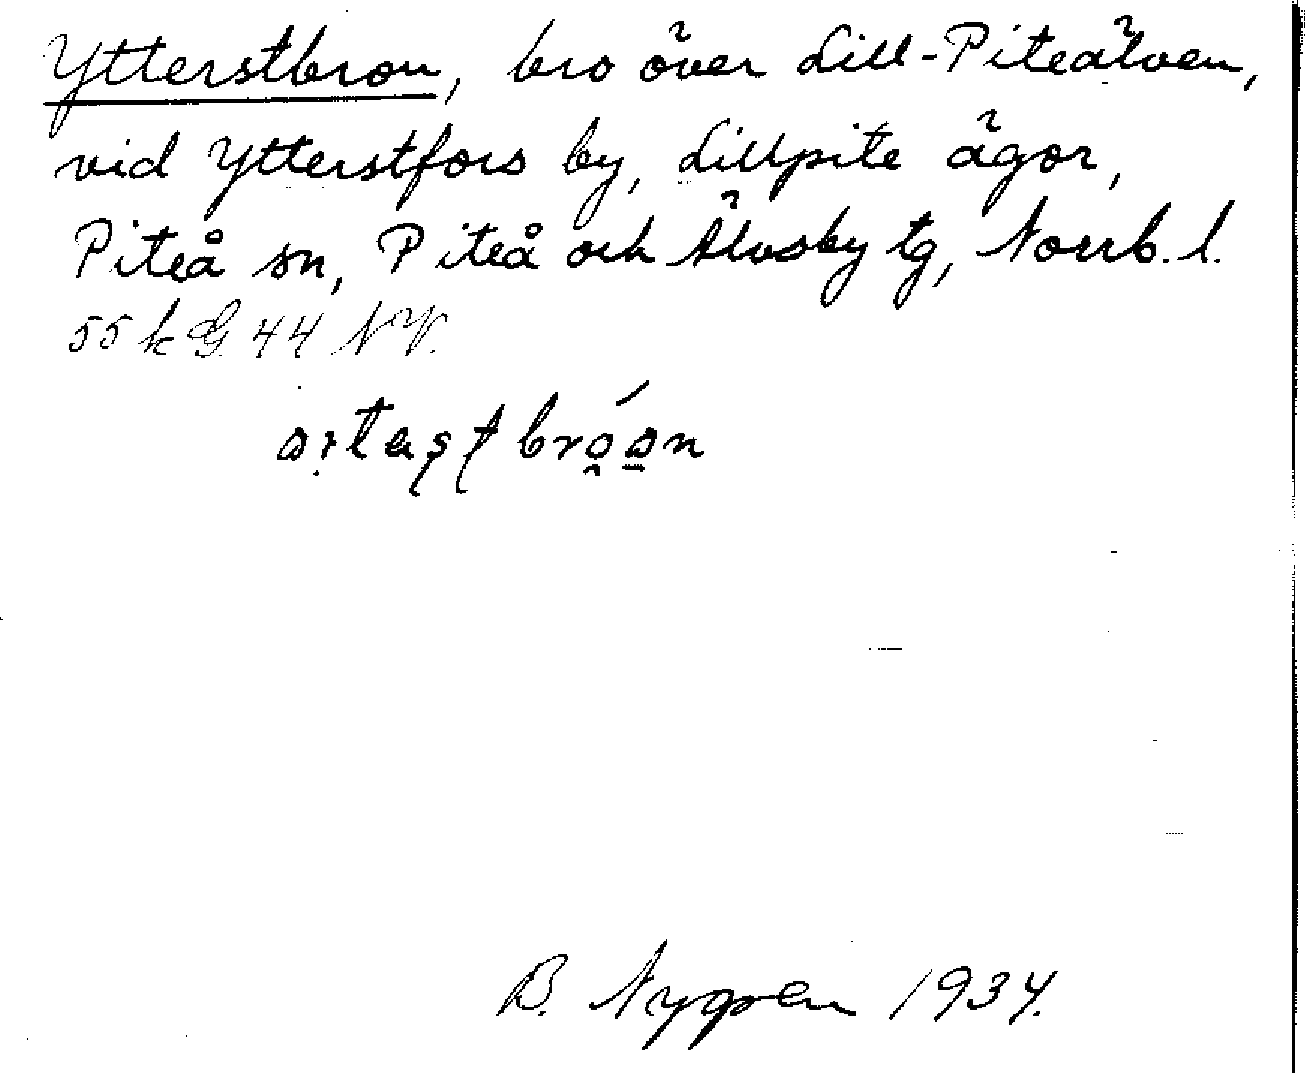 Ytterstbron, bro över Lill-Piteälven,
vid Ytterstfors by, Lillpite ägor,
Piteå sn, Piteå och Älvsby tg, Norrb. l.
55 k G. 44 NV.
B. Nygren 1934.